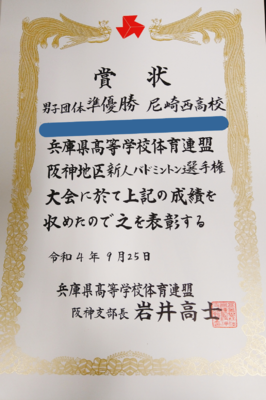 賞状
男子団体準優勝 尼崎西高校
兵庫県高等学校体育連盟
阪神地区新人バドミントン選手権
大会に於て上記の成績を
収めたので之を表彰する
令和4年9月25日
兵庫県高等学校体育連盟
阪神支部長 岩井高士